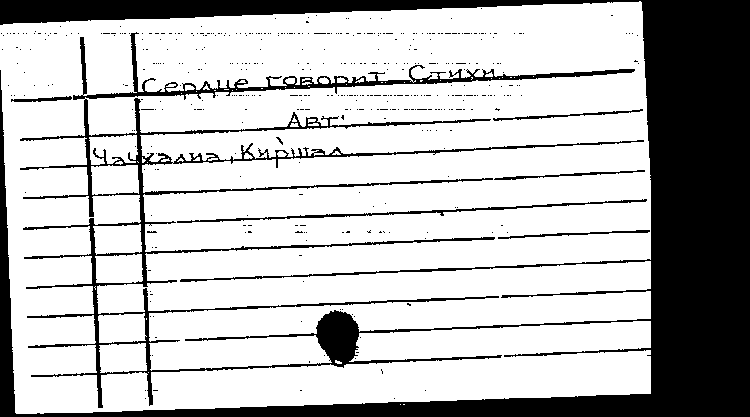 Сердце говорит. Стихи.
Авт:
Чачхалиа, Киршал